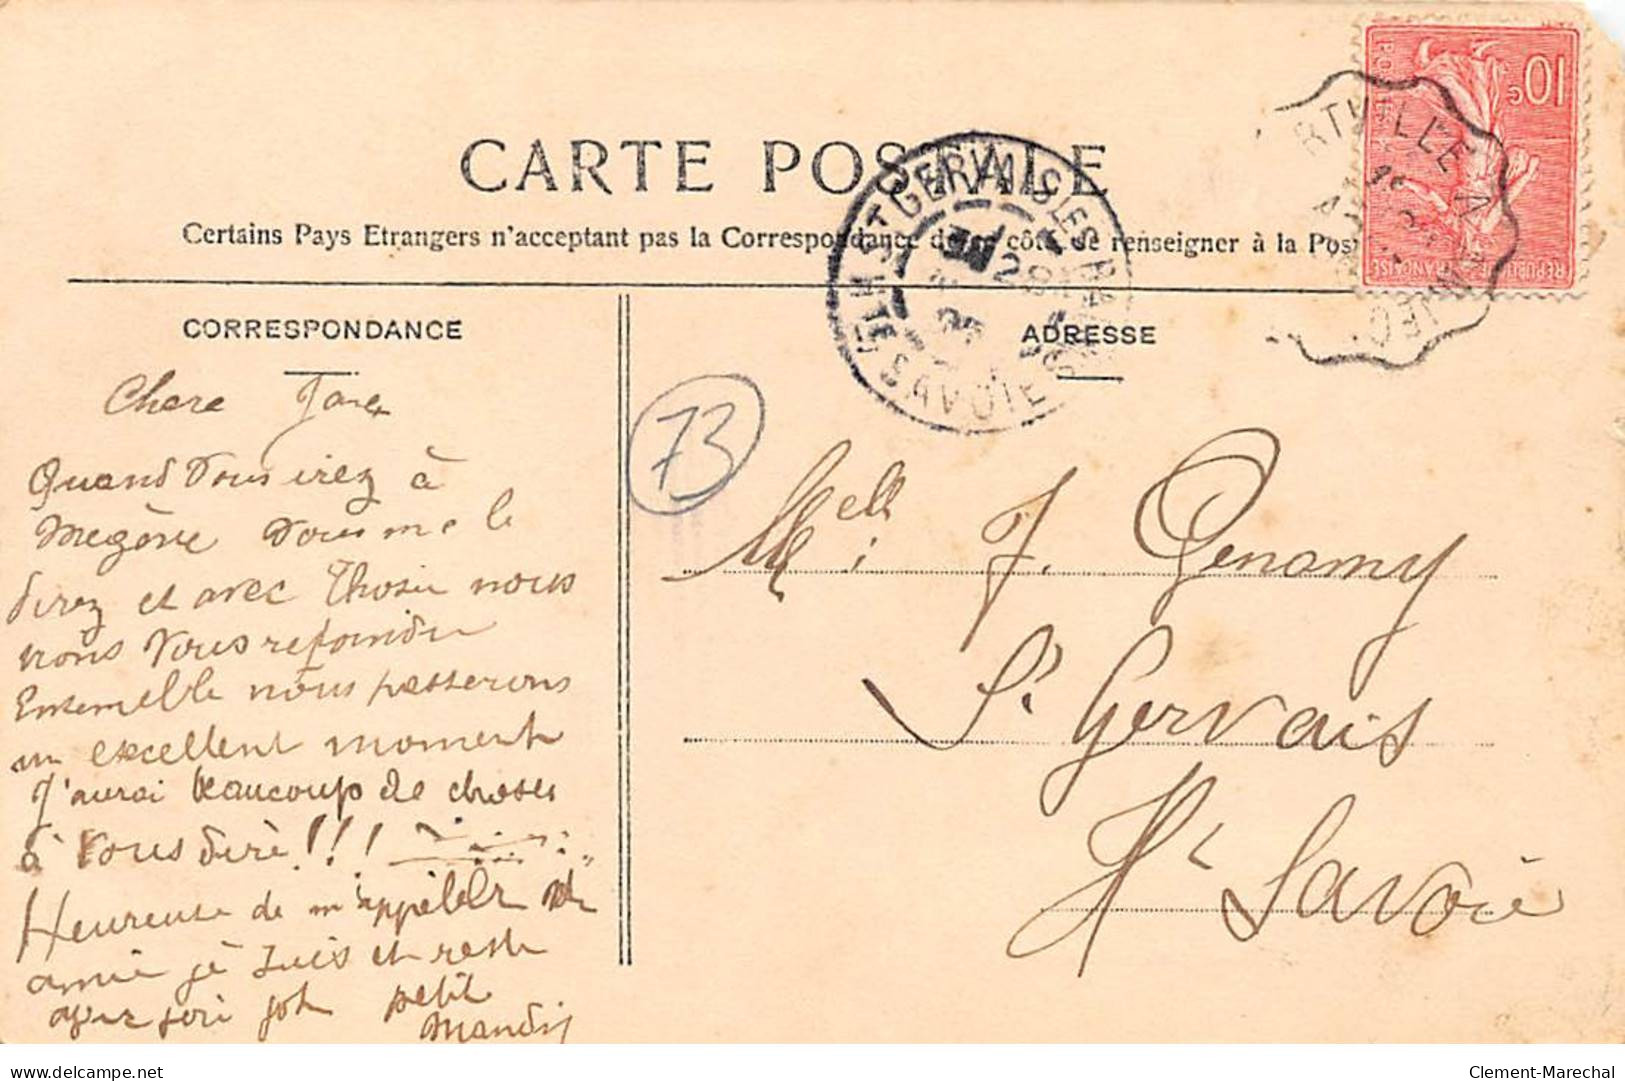 CARTE POSTALE
Certains Pays Etrangers n'acceptant pas la Correspondance de ce côté se renseigner à la Pos
CORRESPONDANCE
ADRESSE
10c
POSTES
REPUBLIQUE FRANÇAISE
RTHILLE A
ST GERVAIS LES BAINS
HTE SAVOIE
28
73
Chere Jane
Quand vous irez à
Megève vous me le
direz et avec nous
irons vous rejoindre
Ensemelble nous passerons
un excellent moment
J'aurai beaucoup de choses
à vous dire!!!
Heureuse de m'appeler
amie je suis et reste
petit
Mandy
Melle J. Genamy
St Gervais
Hte Savoie
delcampe.net
Clement-Marechal